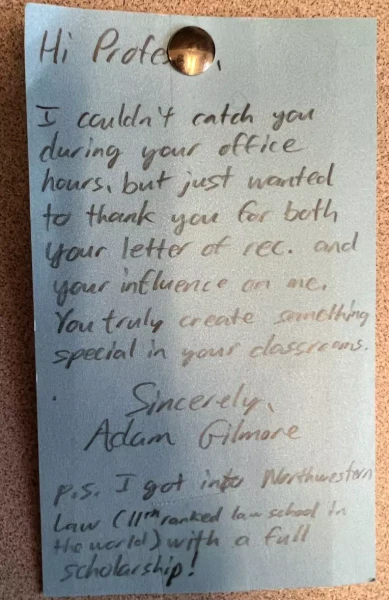 Hi Profe
I couldn't catch you
during your office
hours, but just wanted
to thank you for both
your letter of rec. and
your influence on me.
You truly create something
special in your classrooms.
Sincerely,
Adam Gilmore
P.S. I got into Northwestern
Law (11th ranked law school in
the world) with a full
scholarship!